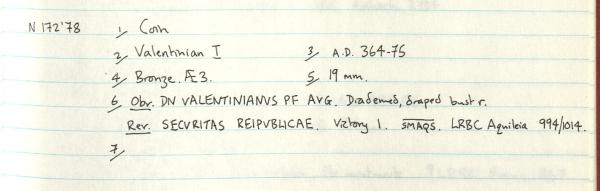 N 172'78 1, Coin
2, Valentinian I 3, A.D. 364-75
4, Bronze. Æ3. 5, 19 mm.
6, Obv. DN VALENTINIANVS PF AVG. Diademed, draped bust r.
Rev. SECVRITAS REIPVBLICAE. Victory l. SMAQS. LRBC Aquileia 994/1014.
7,